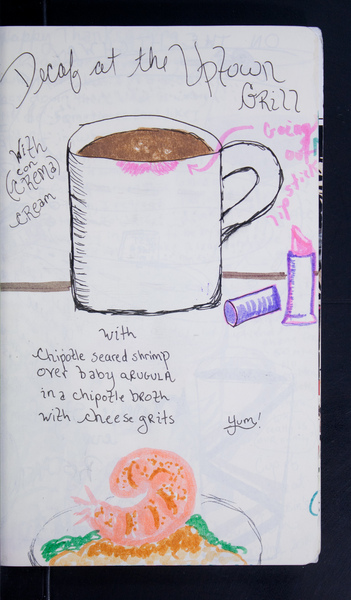 Decaf at the Uptown
Grill
With
(con
crema)
cream
Going
out
lipstick
with
Chipotle seared shrimp
over baby ARUGULA
in a chipotle broth
with cheese grits
Yum!